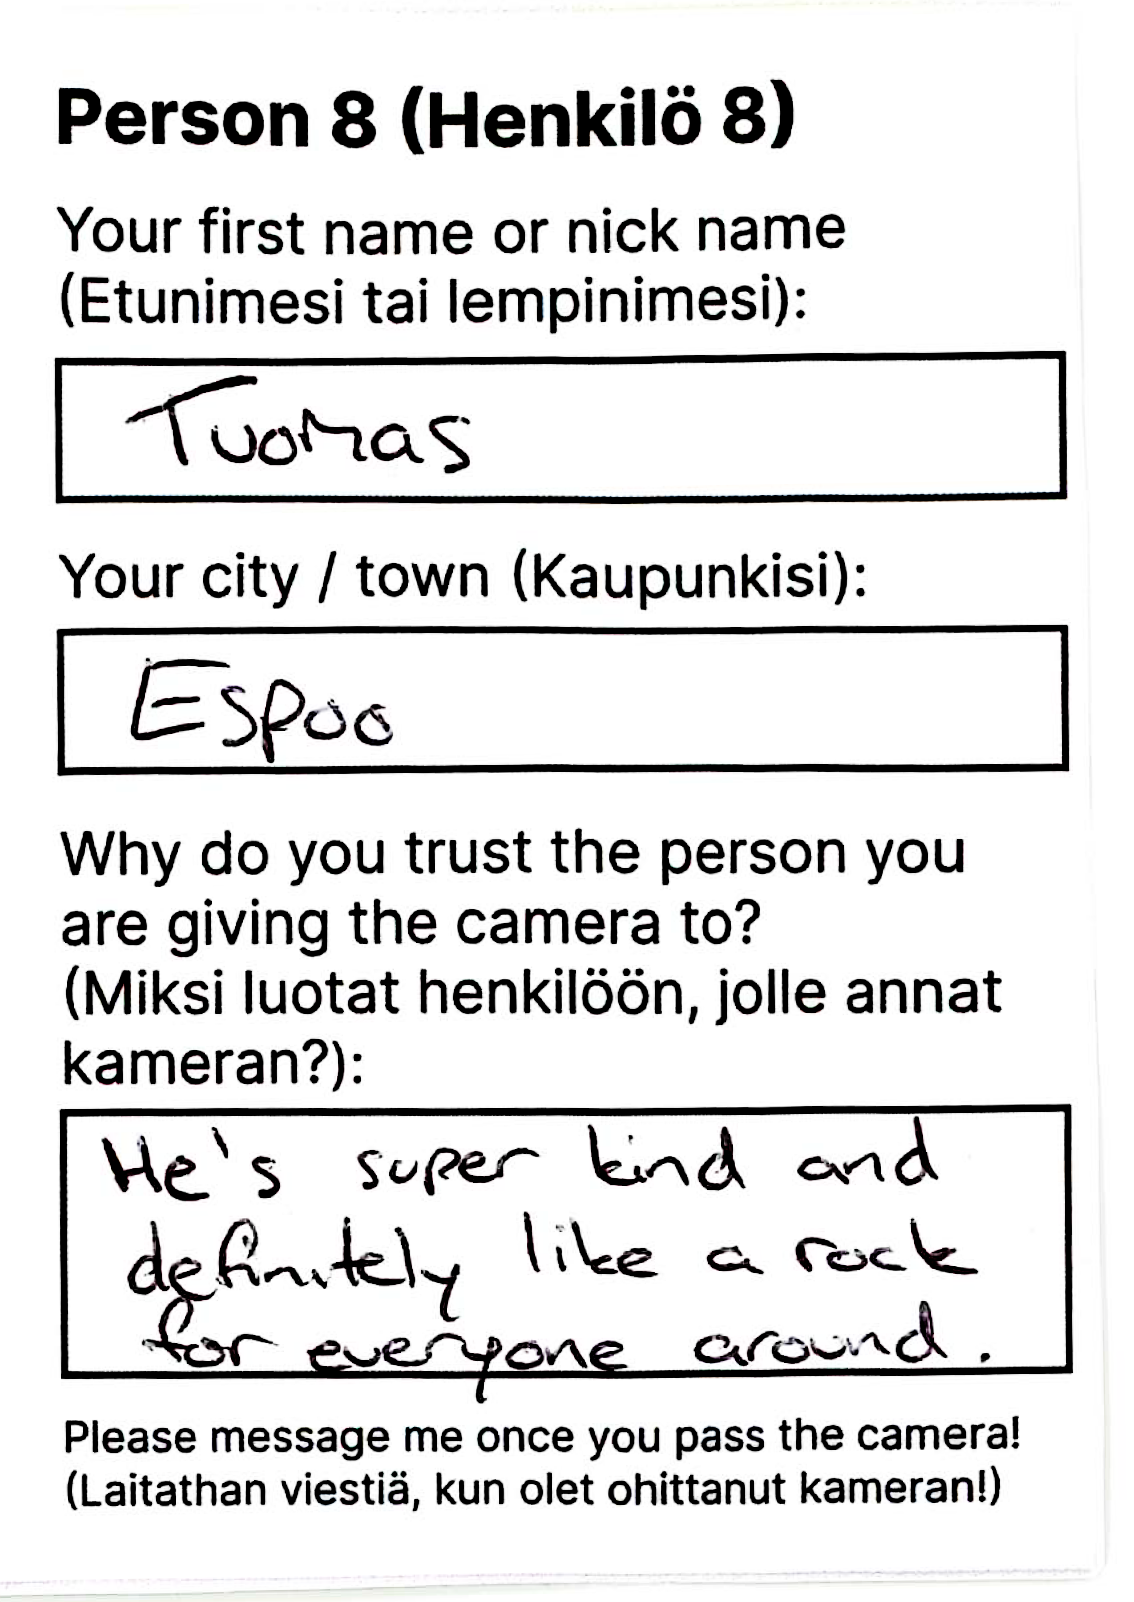 Person 8 (Henkilö 8)
Your first name or nick name
(Etunimesi tai lempinimesi):
Tuomas
Your city / town (Kaupunkisi):
Espoo
Why do you trust the person you
are giving the camera to?
(Miksi luotat henkilöön, jolle annat
kameran?):
He's super kind and
definitely like a rock
for everyone around.
Please message me once you pass the camera!
(Laitathan viestiä, kun olet ohittanut kameran!)